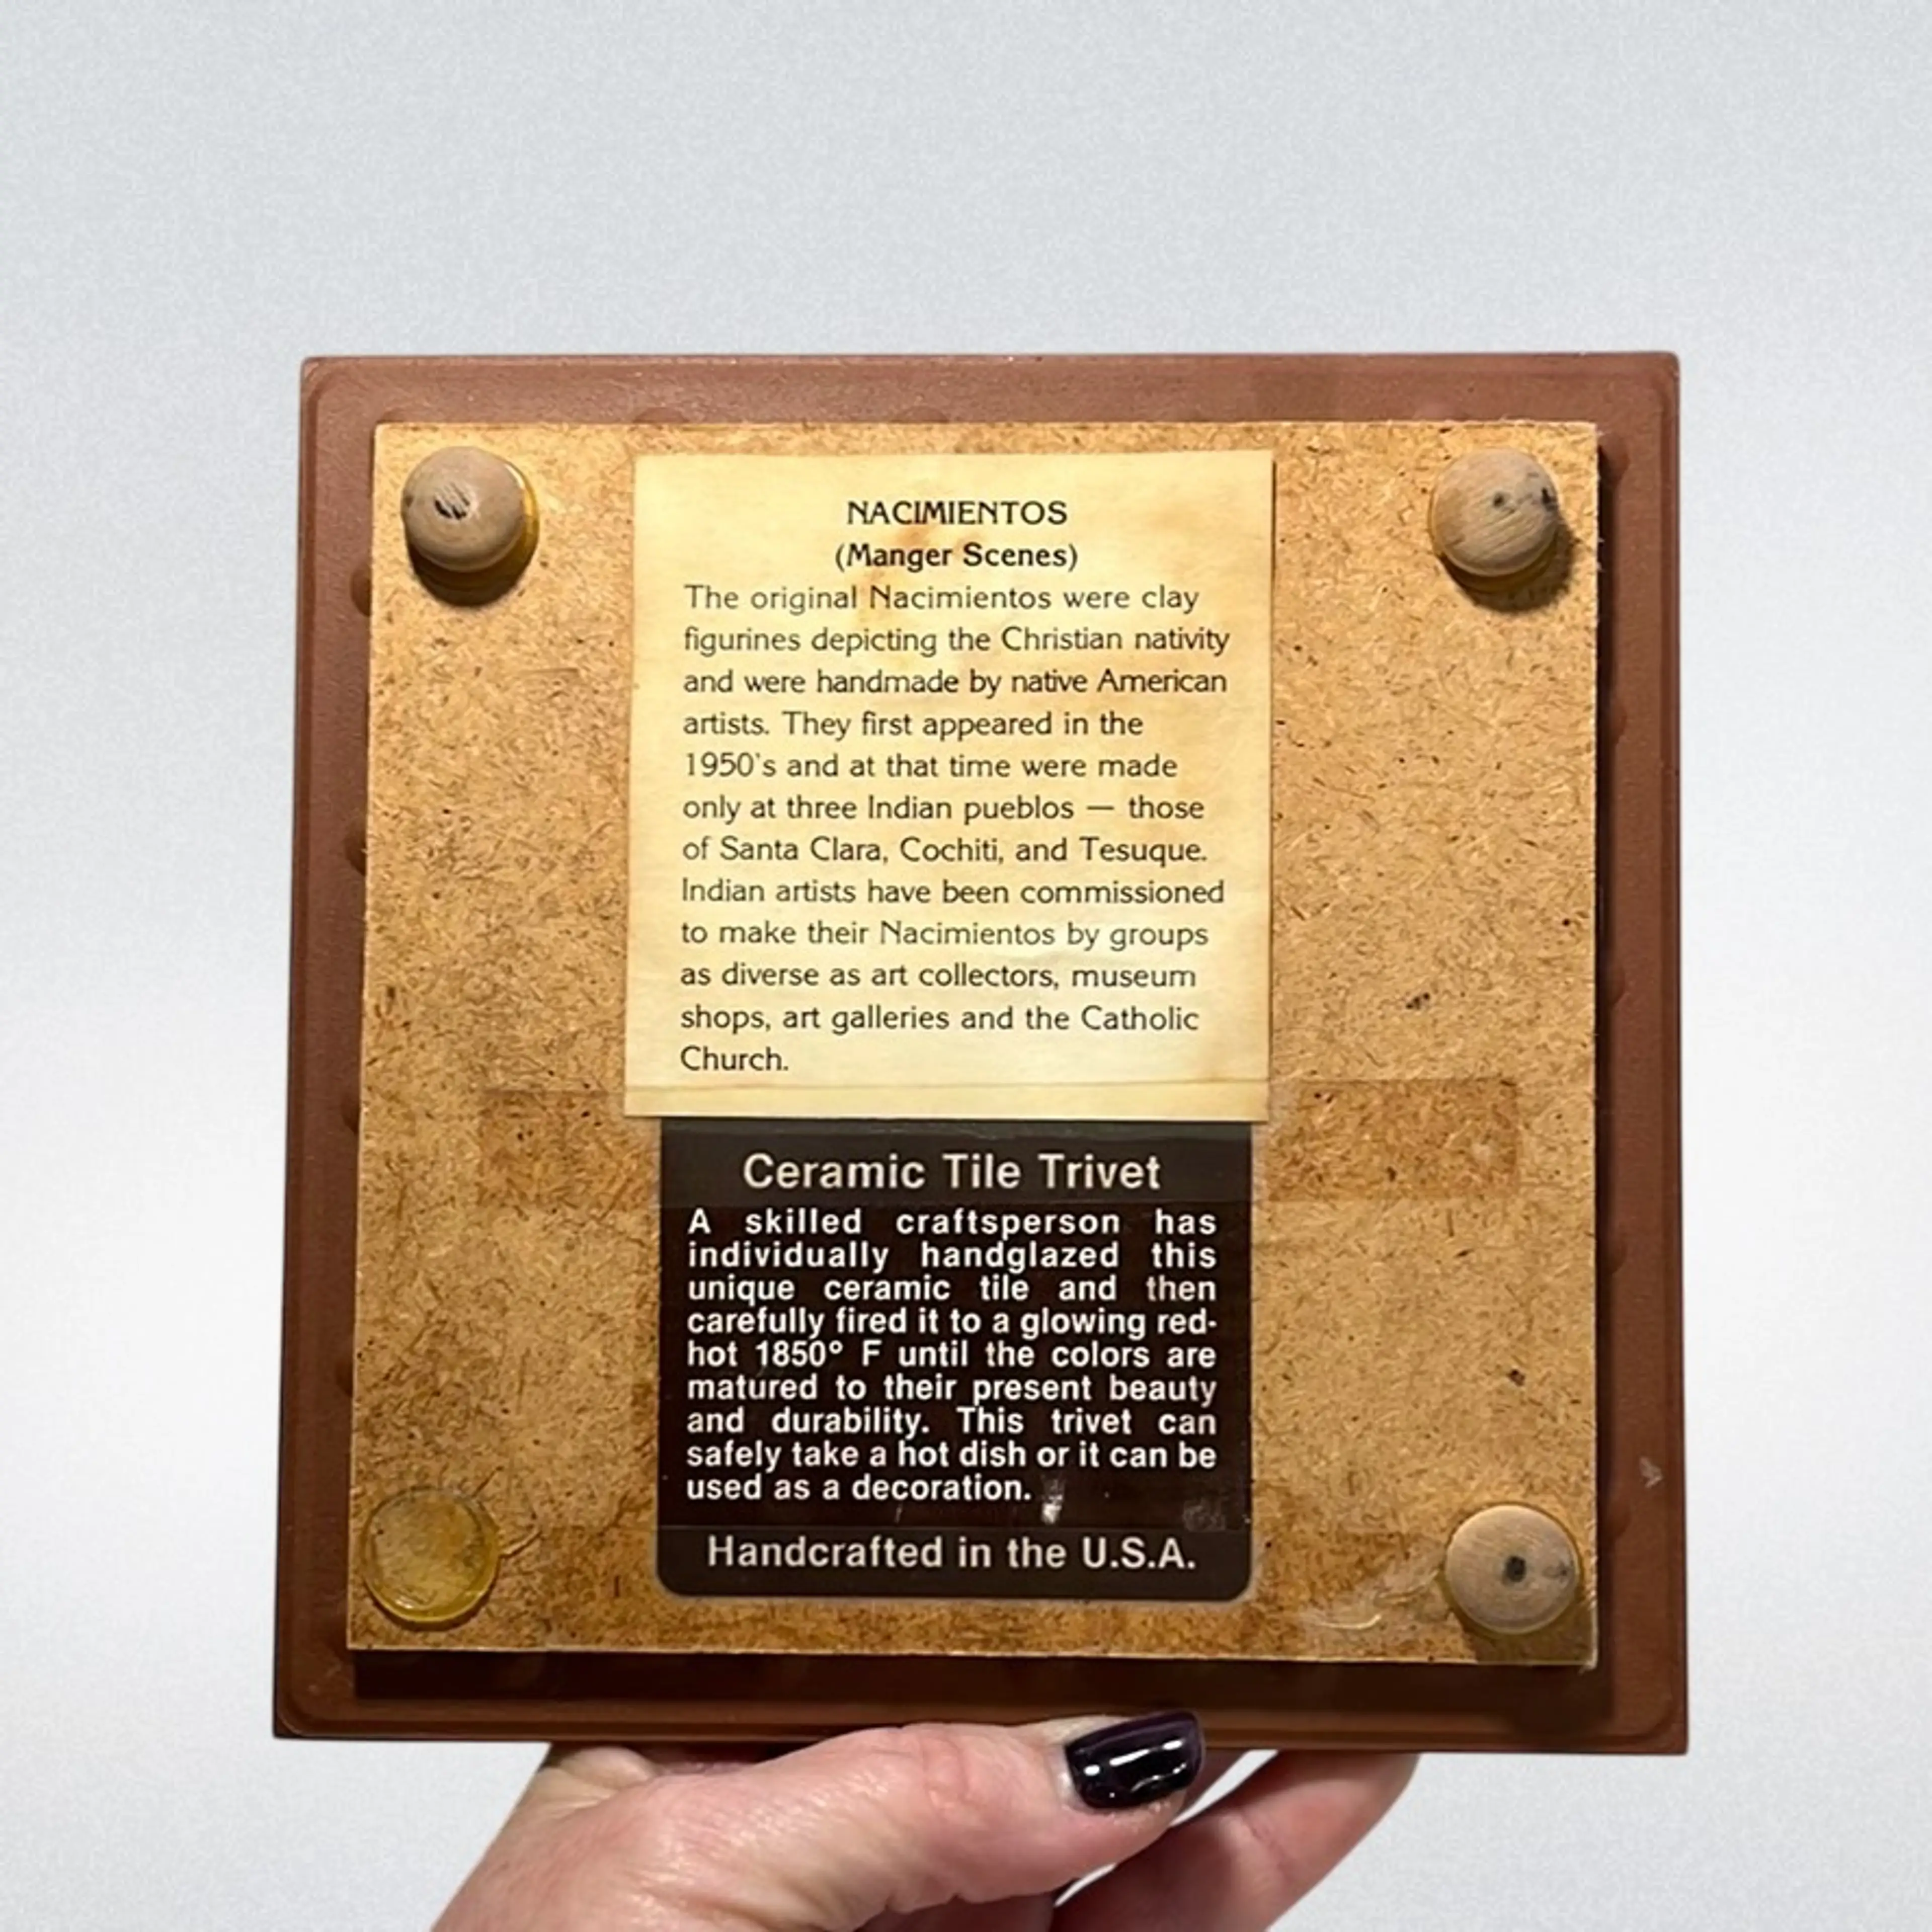 NACIMIENTOS
(Manger Scenes)
The original Nacimientos were clay
figurines depicting the Christian nativity
and were handmade by native American
artists. They first appeared in the
1950's and at that time were made
only at three Indian pueblos — those
of Santa Clara, Cochiti, and Tesuque.
Indian artists have been commissioned
to make their Nacimientos by groups
as diverse as art collectors, museum
shops, art galleries and the Catholic
Church.
Ceramic Tile Trivet
A skilled craftsperson has
individually handglazed this
unique ceramic tile and then
carefully fired it to a glowing red-
hot 1850° F until the colors are
matured to their present beauty
and durability. This trivet can
safely take a hot dish or it can be
used as a decoration.
Handcrafted in the U.S.A.